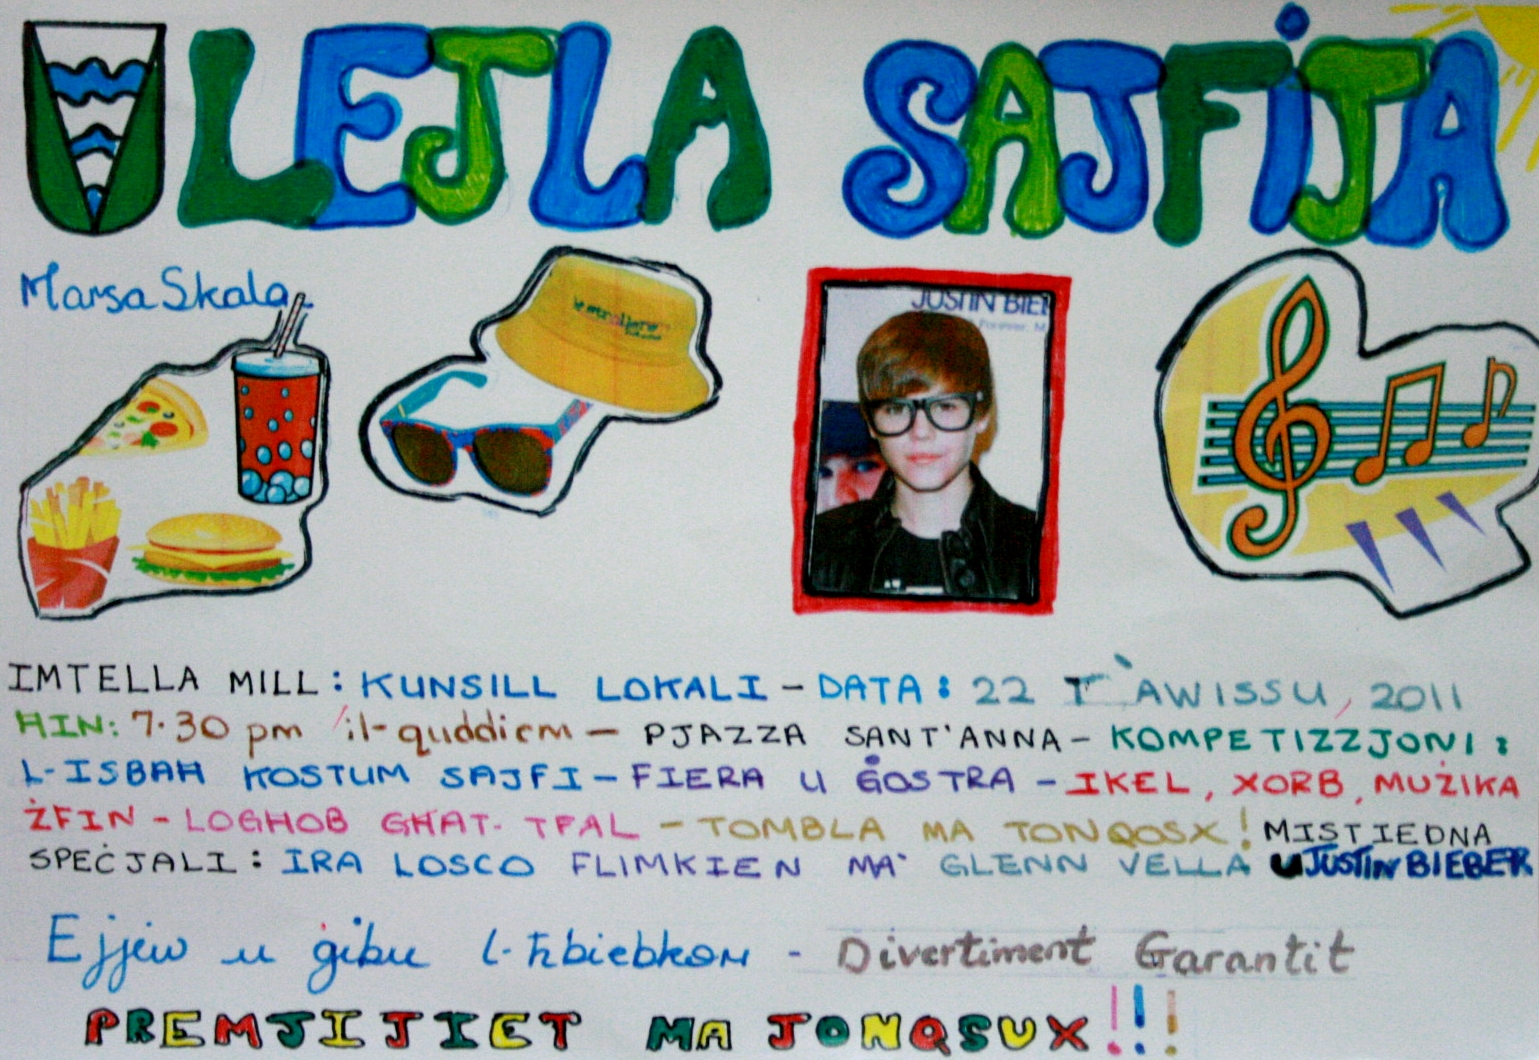 LEJLA SAJFIJA
MarsaSkala
JUSTIN BIE
Forever, M
IMTELLA MILL: KUNSILL LOKALI - DATA: 22 T`AWISSU, 2011
HIN: 7.30 pm 'il-quddiem - PJAZZA SANT'ANNA - KOMPETIZZJONI:
L-ISBAH KOSTUM SAJFI - FIERA U ĠOSTRA - IKEL, XORB, MUŻIKA
ŻFIN - LOGHOB GHAT-TFAL - TOMBLA MA TONQOSX! MISTIEDNA
SPEĊJALI: IRA LOSCO FLIMKIEN MA' GLENN VELLA U JUSTIN BIEBER
Ejjew u ġibu l-ħbiebkom - Divertiment Garantit
PREMJIJIET MA JONQSUX!!!